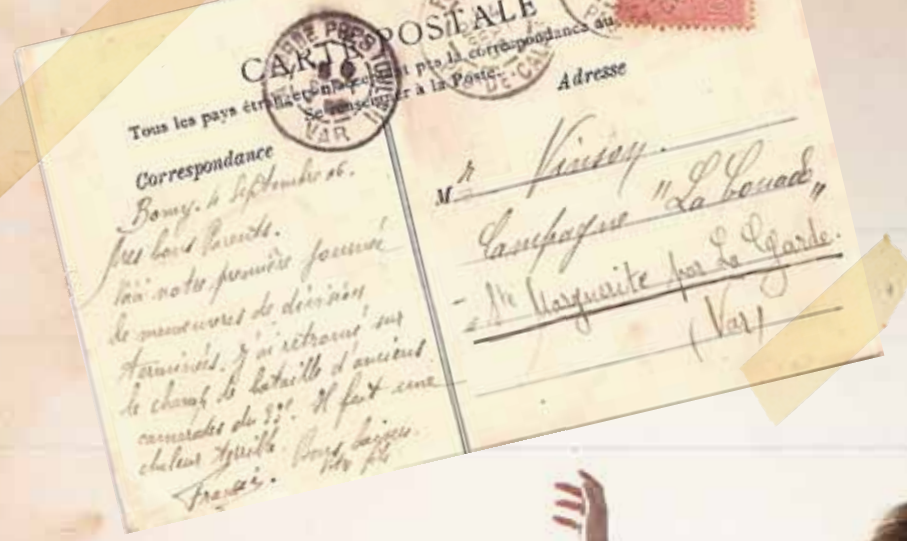 CARTE POSTALE
Tous les pays étrangers n'acceptent pas la correspondance au
Se renseigner à la Poste.
Correspondance
Bomy. 4 Septembre 06.
Mes bons Parents.
notre première journée
de manoeuvres de division
terminées. J'ai retrouvé sur
le champ de bataille d'anciens
camarades du 33e. Il fait une
chaleur terrible. Bons baisers.
Votre fils
Francis.
Adresse
Mr Vinson.
Campagne "La
Ste Marguerite par La Garde.
(Var)
PRES TOULON
VAR
DE-CAL